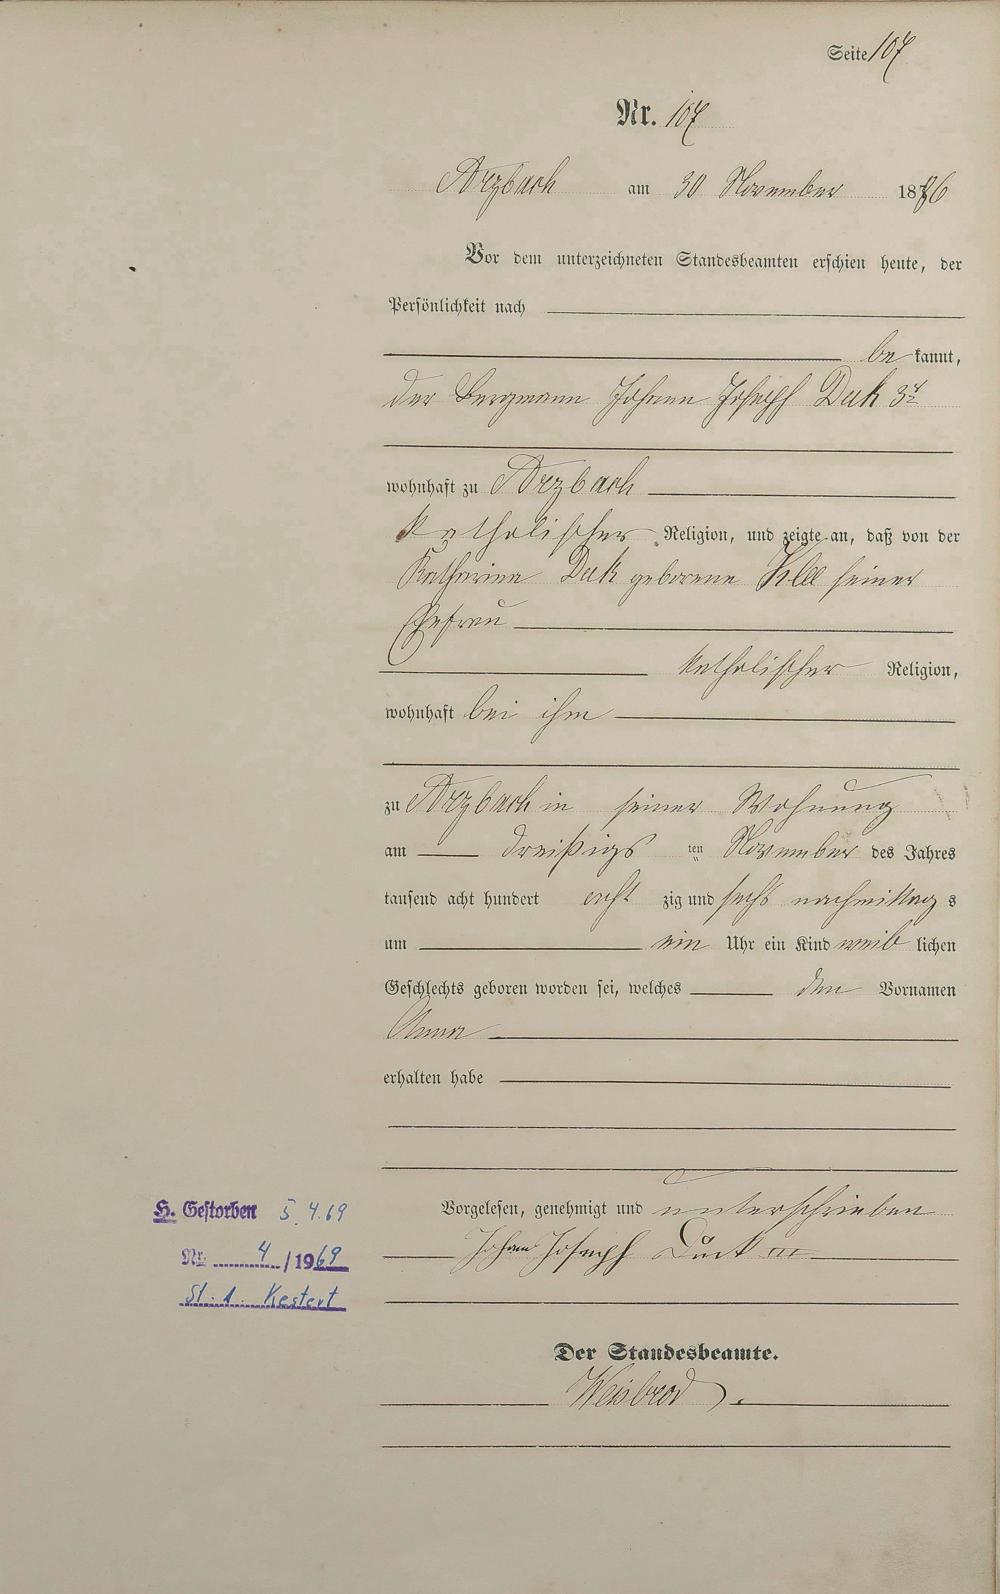 Seite 107
Nr. 107
Arzbach am 30 November 1886
Vor dem unterzeichneten Standesbeamten erschien heute, der
Persönlichkeit nach
be kannt,
der Bergmann Johann Joseph 3t
wohnhaft zu Arzbach
katholischer Religion, und zeigte an, daß von der
Katharina geborene Klee seiner
Ehefrau
katholischer Religion,
wohnhaft bei ihm
zu Arzbach in seiner Wohnung
am dreißigs ten November des Jahres
tausend acht hundert acht zig und sechs nachmittag s
um ein Uhr ein Kind weib lichen
Geschlechts geboren worden sei, welches den Vornamen
Anna
erhalten habe
Vorgelesen, genehmigt und unterschrieben
Johann Joseph III
Der Standesbeamte.
Weisbrod.
H. Gestorben 5.4.69
Nr. 4 / 1969
St. A. Kestert